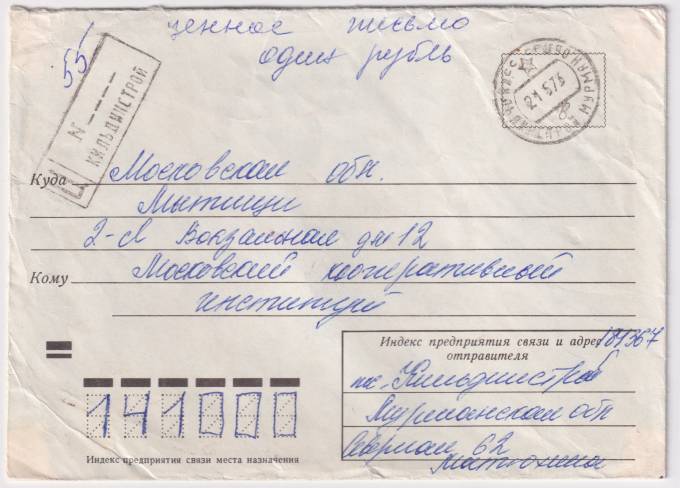 ценное письмо
один рубль
55
Ц №
КИЛЬДИНСТРОЙ
21 5 73
Куда Московская обл.
Мытищи
2-я Вокзальная дм 12
Кому Московский кооперативный
институт
Индекс предприятия связи и адрес
отправителя
пос. Кильдинстрой
Мурманская обл
62
Матюхина
141000
Индекс предприятия связи места назначения